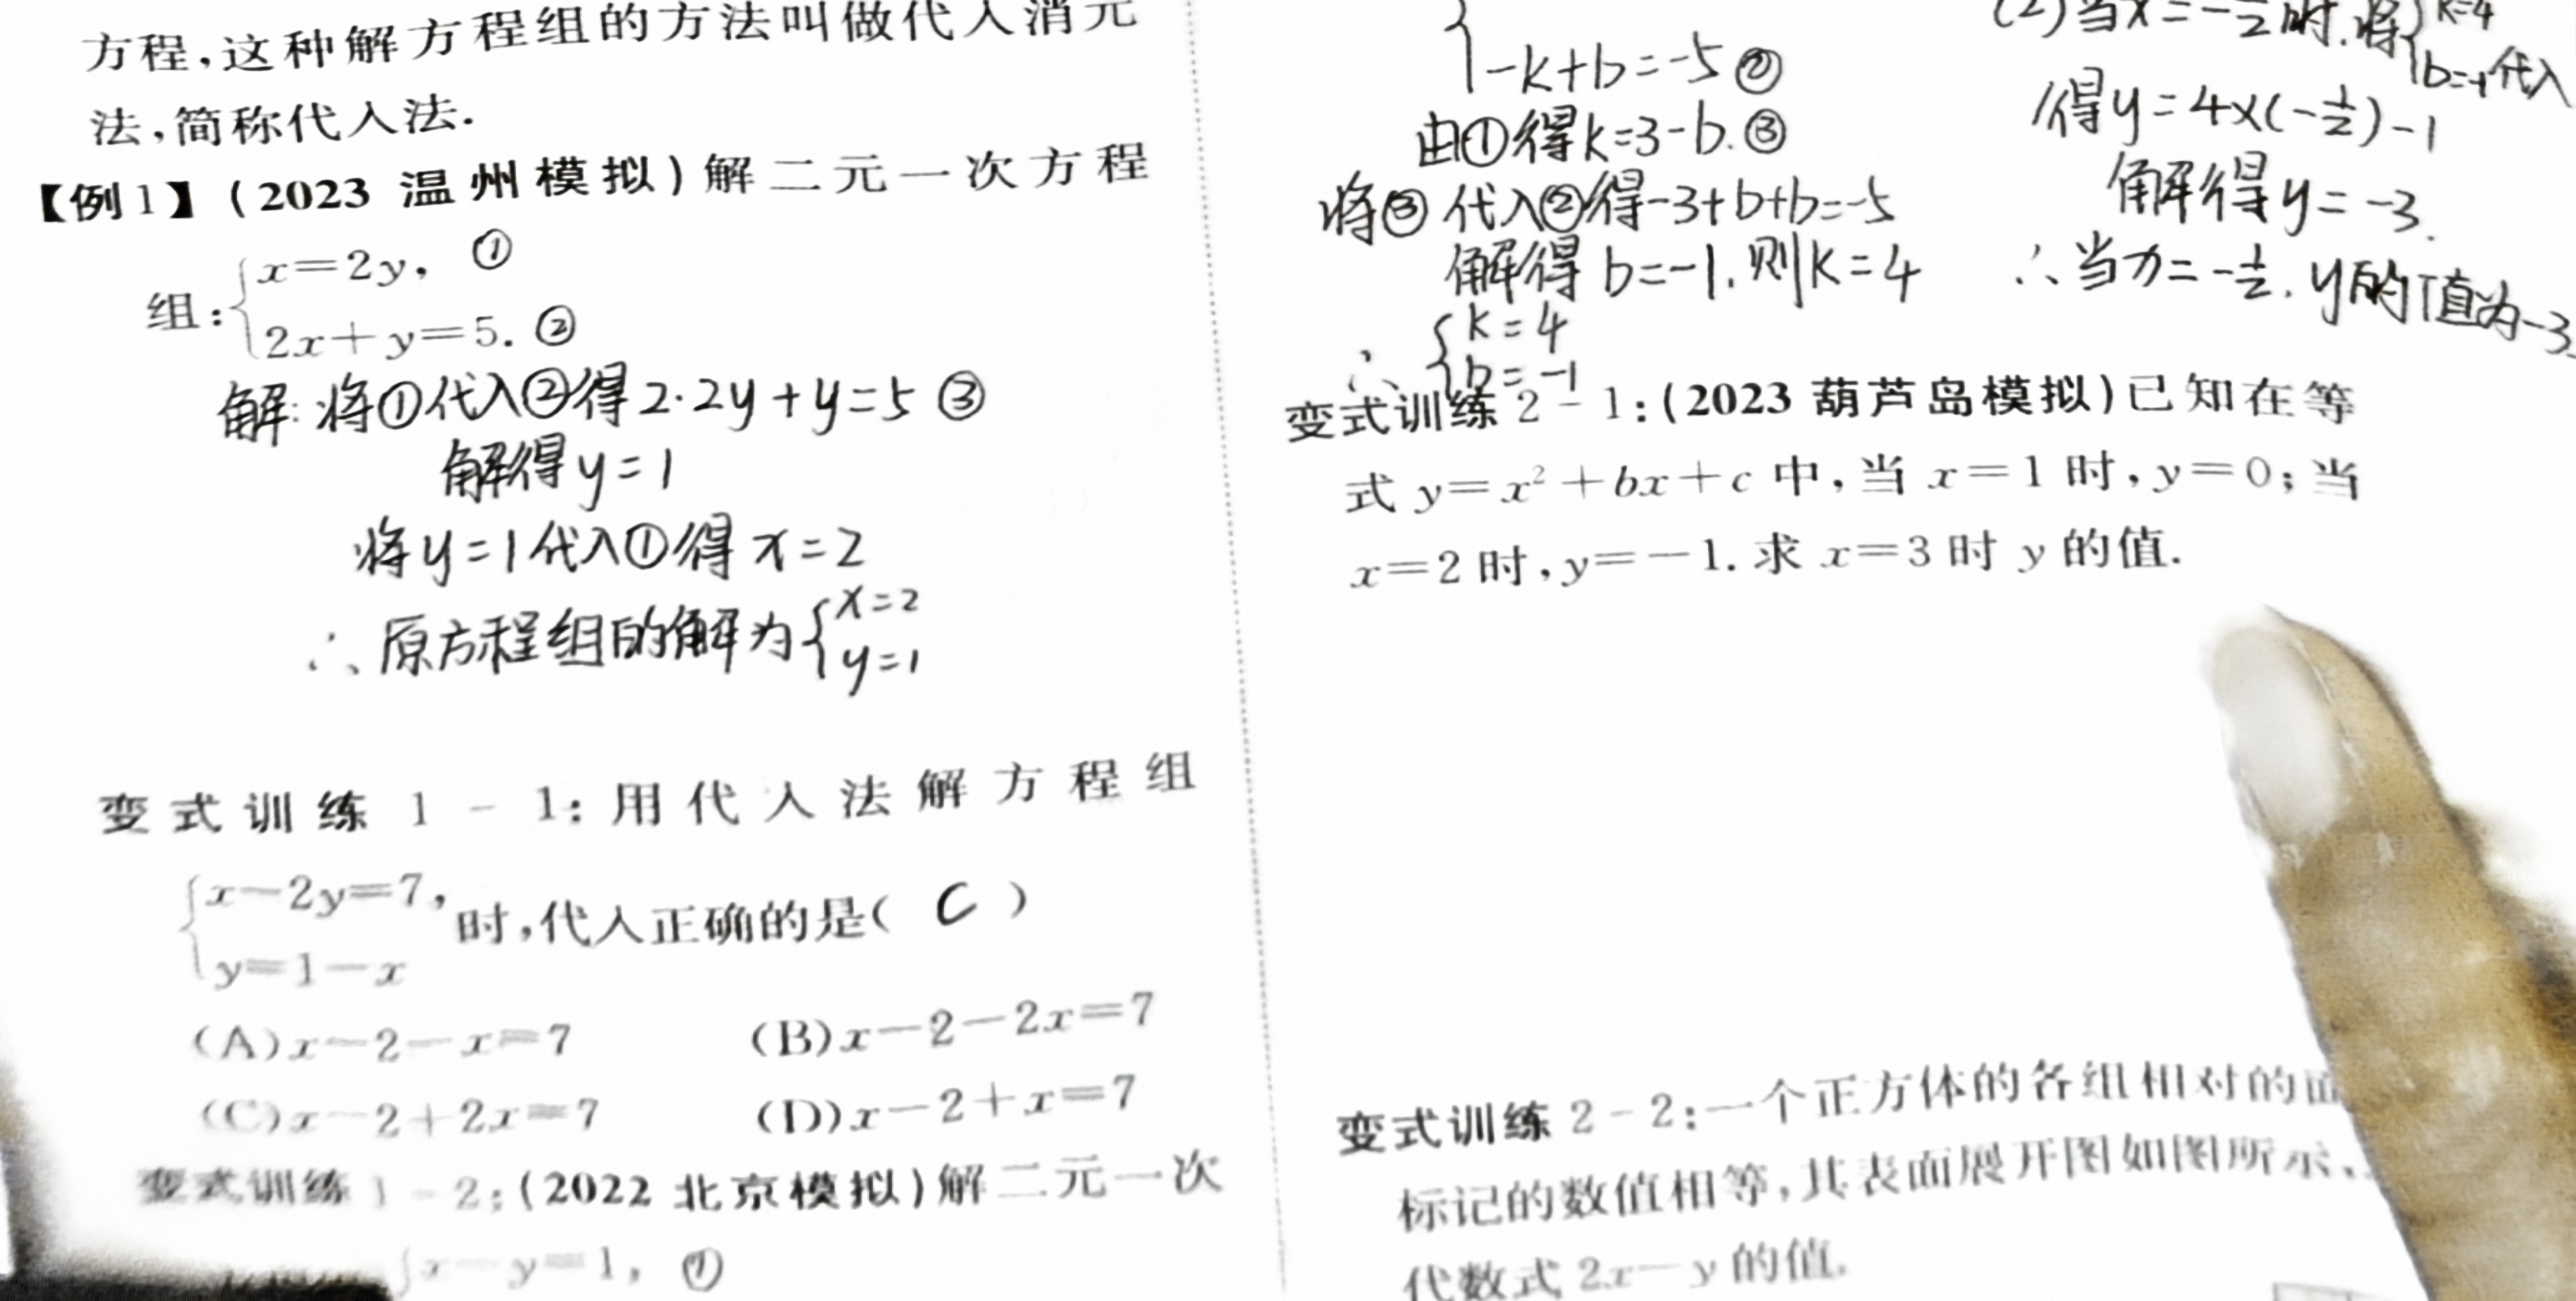 方程,这种解方程组的方法叫做代入消元
法,简称代入法.
【例1】(2023 温州模拟)解二元一次方程
组:{x=2y, ①
2x+y=5. ②
解:将①代入②得2·2y+y=5 ③
解得y=1
将y=1代入①得x=2
∴原方程组的解为{x=2
y=1
变式训练 1-1:用代入法解方程组
{x-2y=7,
y=1-x
时,代入正确的是( C )
(A)x-2-x=7 (B)x-2-2x=7
(C)x-2+2x=7 (D)x-2+x=7
变式训练 1-2:(2022 北京模拟)解二元一次
{x-y=1, ①
{-k+b=-5 ②
由①得k=3-b.③
将③代入②得-3+b+b=-5
解得b=-1.则k=4
∴{k=4
b=-1
(2)当x=-1/2时.将{k=4
b=-1代入
得y=4×(-1/2)-1
解得y=-3.
∴当x=-1/2.y的值为-3.
变式训练 2-1:(2023 葫芦岛模拟)已知在等
式 y=x²+bx+c 中,当 x=1 时,y=0;当
x=2 时,y=-1.求 x=3 时 y 的值.
变式训练 2-2:一个正方体的各组相对的面
标记的数值相等,其表面展开图如图所示,
代数式 2x-y 的值.